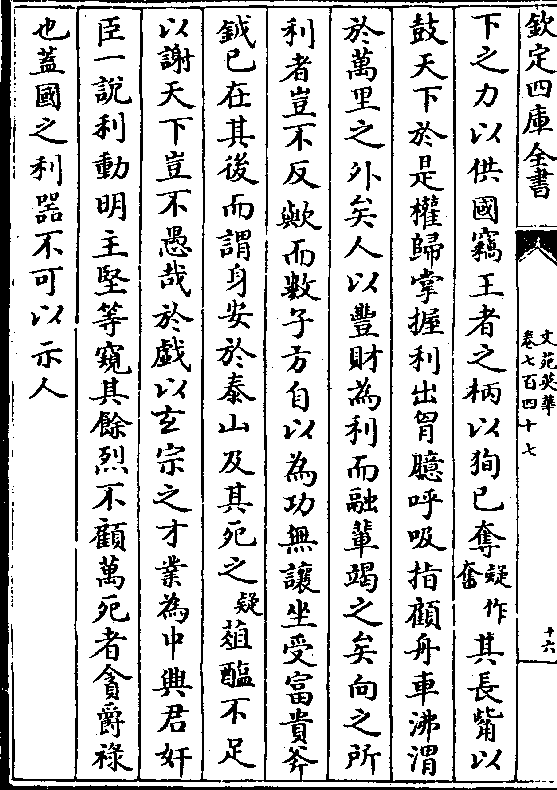 欽定四庫全書
文苑英華
卷七百四十七
十六
下之力以供國竊王者之柄以狥已奪疑作奮其長觜以
鼓天下於是權歸掌握利出胷臆呼吸指顧舟車沸渭
於萬里之外矣人以豐財為利而融輩竭之矣向之所
利者豈不反歟而數子方自以為功無讓坐受富貴斧
鉞已在其後而謂身安於泰山及其死之疑葅醢不足
以謝天下豈不愚哉於戲以玄宗之才業為中興君奸
臣一說利動明主堅等窺其餘烈不顧萬死者貪爵祿
也蓋國之利器不可以示人